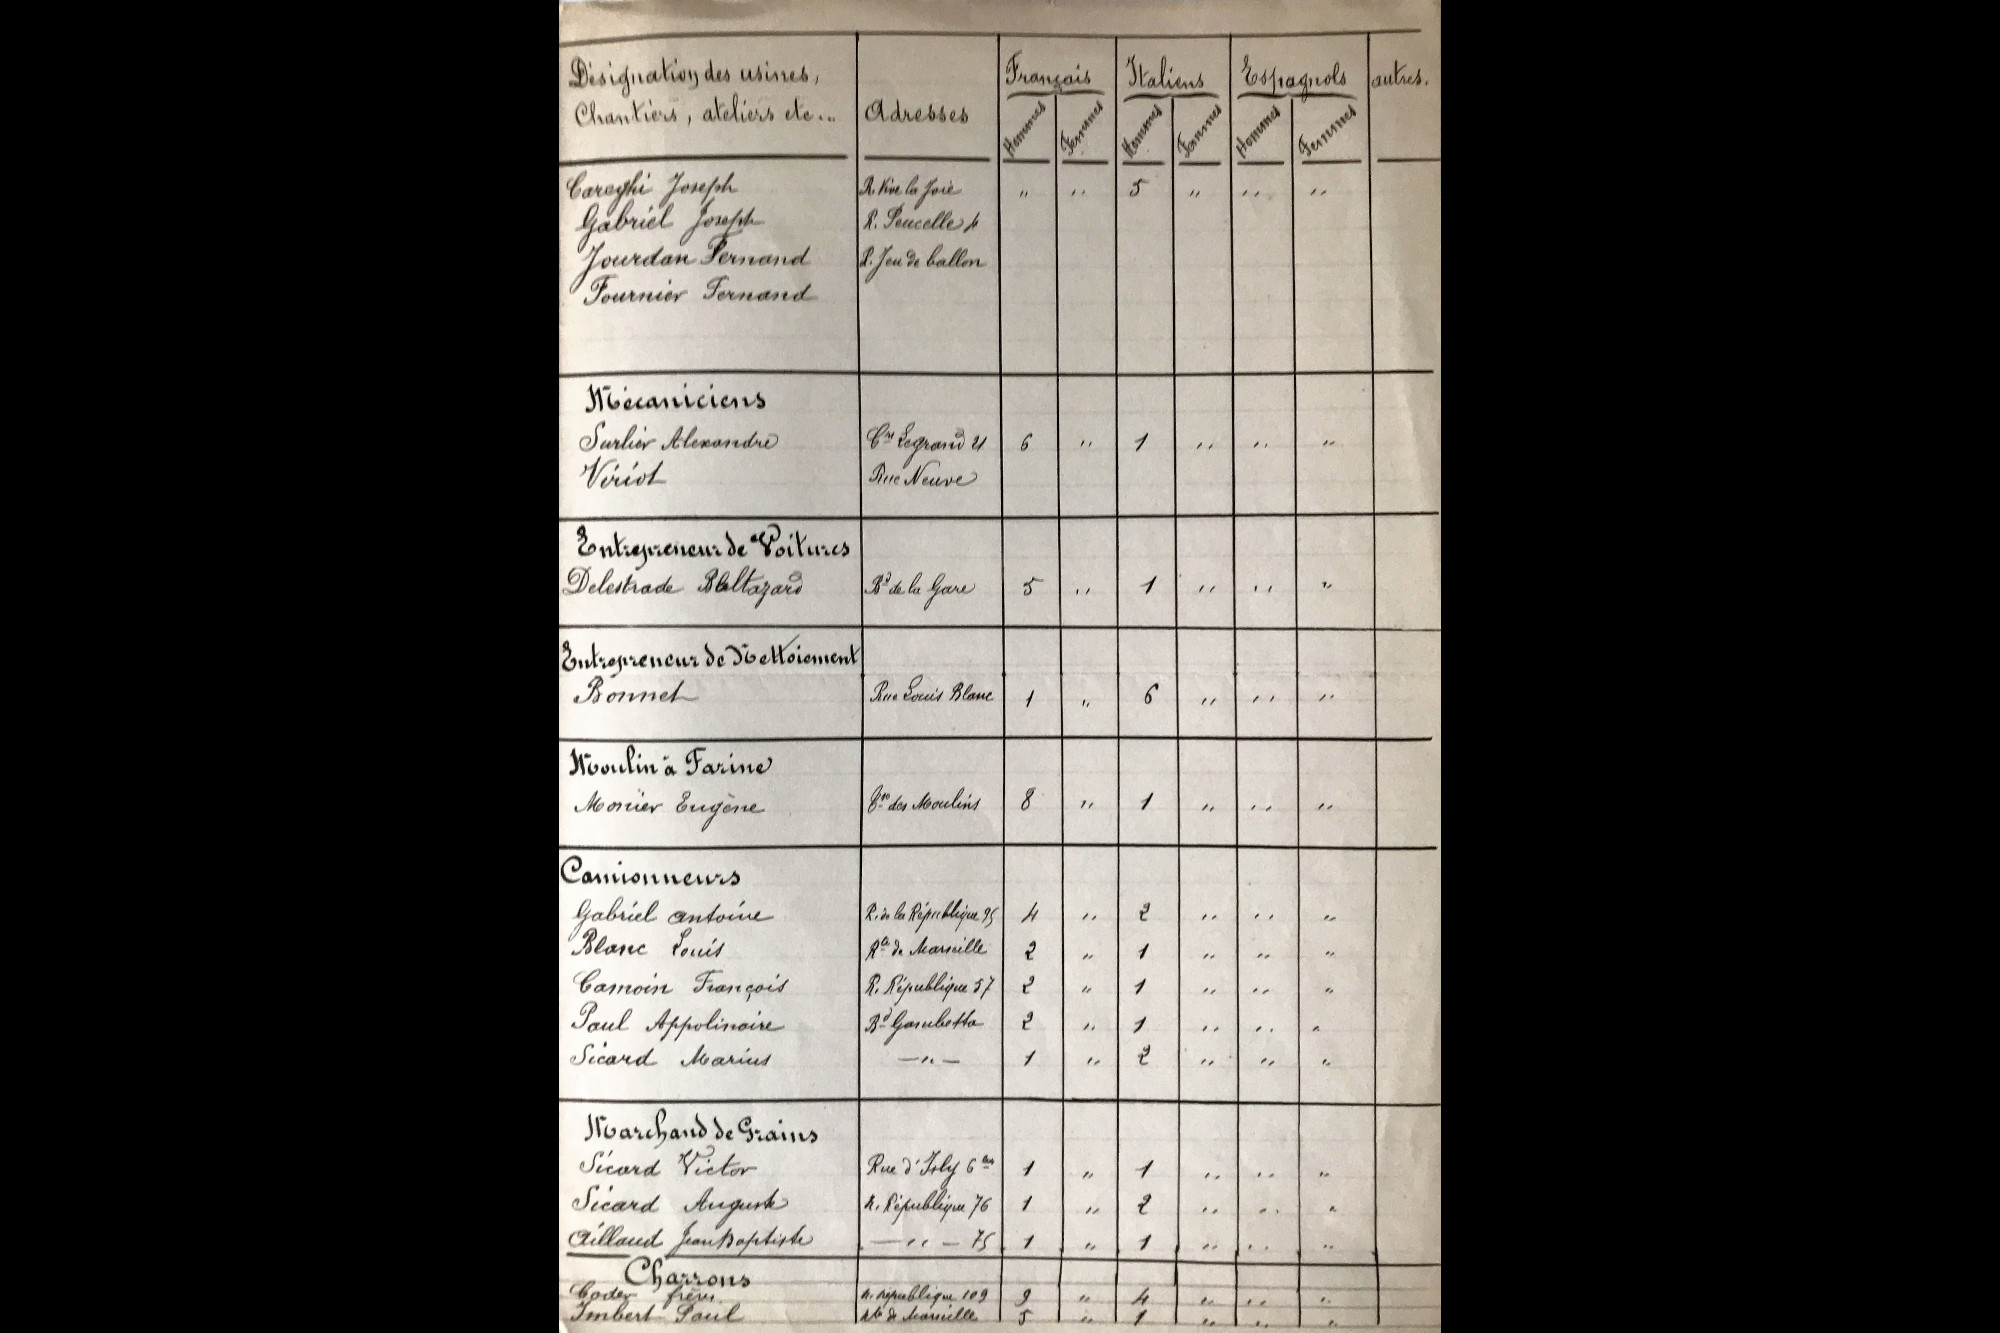 Désignation des usines, Chantiers, ateliers etc... Adresses Français Italiens Espagnols autres.
Hommes Femmes Hommes Femmes Hommes Femmes
Careghi Joseph R. Vive la Joie " " 5 " " "
Gabriel Joseph R. Pucelle 4
Jourdan Fernand R. Jeu de ballon
Fournier Fernand
Mécaniciens
Surlier Alexandre Crs Legrand 21 6 " 1 " " "
Viriot Rue Neuve
Entrepreneur de Voitures
Delestrade Baltazard Bd de la Gare 5 " 1 " " "
Entrepreneur de Nettoiement
Bonnet Rue Louis Blanc 1 " 6 " " "
Moulin à Farine
Monier Eugène des Moulins 8 " 1 " " "
Camionneurs
Gabriel antoine R. de la République 95 4 " 2 " " "
Blanc Louis Rte de Marseille 2 " 1 " " "
Camoin François R. République 57 2 " 1 " " "
Paul Appolinaire Bd Gambetta 2 " 1 " " "
Sicard Marius —"— 1 " 2 " " "
Marchand de Grains
Sicard Victor Rue d'Isly 6 1 " 1 " " "
Sicard Auguste r. République 76 1 " 2 " " "
Aillaud Jean Baptiste —"— 75 1 " 1 " " "
Charrons
Coder frères r. république 109 9 " 4 " " "
Imbert Paul Rte de Marseille 5 " 1 " " "